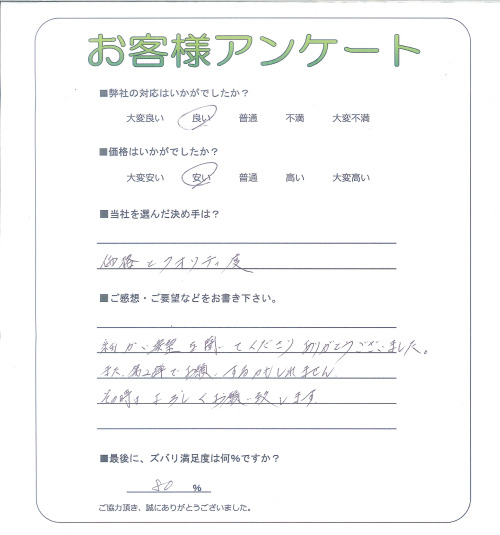 お客様アンケート
■弊社の対応はいかがでしたか？
大変良い 良い 普通 不満 大変不満
■価格はいかがでしたか？
大変安い 安い 普通 高い 大変高い
■当社を選んだ決め手は？
価格とクオリティ度
■ご感想・ご要望などをお書き下さい。
ご要望を聞いてくださりありがとうございました。
また、第2弾でお願いするかもしれません
その時はよろしくお願い致します
■最後に、ズバリ満足度は何％ですか？
80 ％
ご協力頂き、誠にありがとうございました。